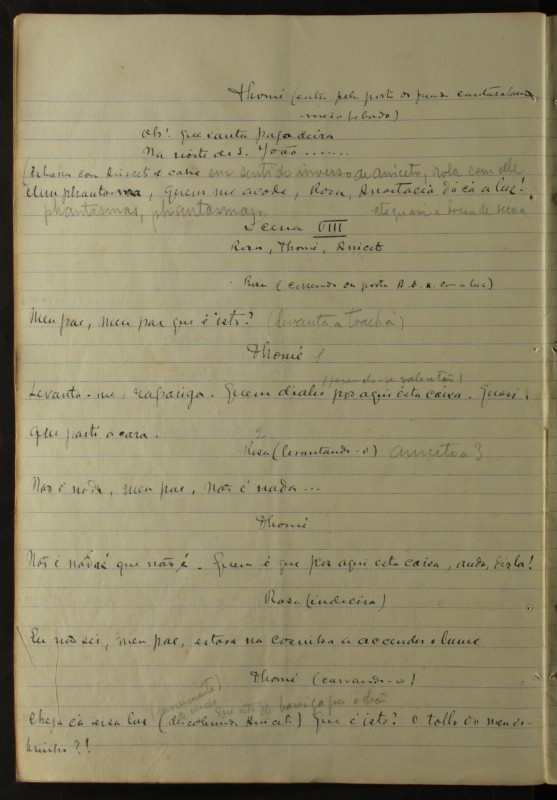 Thomé (entra pela porta do fundo cantarolando
meio ebado)
Oh! que santa pagodeira
Na noite de S. João .......
(Esbarra com Aniceto e cahe em sentido inverso de aniceto, rola com elle
Um phantasma, Quem me acode, Rosa, Anastacia dá cá a luz!
phantasmas, phantasmas, ate quasi a boca de scena
Scena VIII
Rosa, Thomé, Aniceto
Rosa (correndo da porta D. B. com a luz)
Meu pae, meu pae que é isto? (levanta a Toacha)
Thomé 1
(fazendo-se valentão)
Levanta-me, rapariga. Quem diabo poz aqui esta coisa. Quasi
que parti a cara.
2
Rosa (levantando-o) aniceto a 3
Não é nada, meu pae, não é nada...
Thomé
Não é nada é que não é. Quem é que poz aqui esta coisa, anda, diz lá!
Rosa (indecisa)
Eu não sei, meu pae, estava na cozinha a accender o lume
Thomé (curvando-se)
(novamente)
que está de barriga para o chão
Chega cá essa luz (descobrindo Aniceto) Que é isto? O tollo do